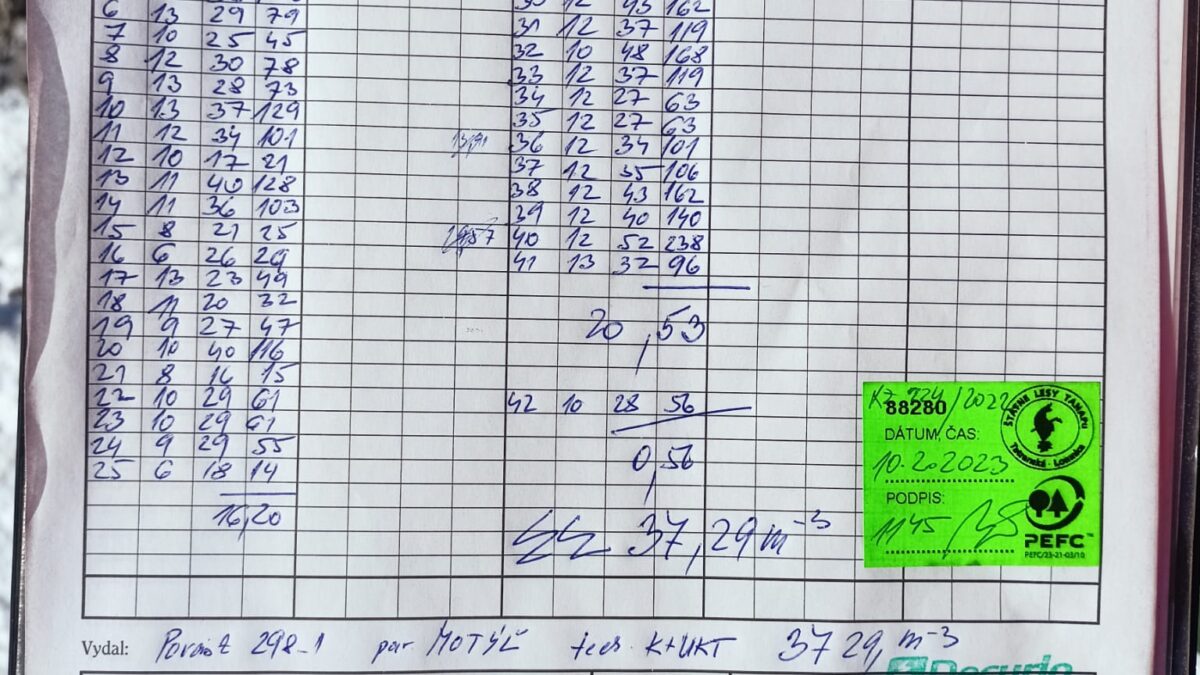 6 13 29 79
7 10 25 45
8 12 30 78
9 13 28 73
10 13 37 129
11 12 34 101
12 10 17 21
13 11 40 128
14 11 36 103
15 8 21 25
16 6 26 29
17 13 23 49
18 11 20 32
19 9 27 47
20 10 40 116
21 8 16 15
22 10 29 61
23 10 29 61
24 9 29 55
25 6 18 14
16,20
12 43 162
31 12 37 119
32 10 48 168
33 12 37 119
34 12 27 63
35 12 27 63
36 12 34 101
37 12 35 106
38 12 43 162
39 12 40 140
40 12 52 238
41 13 32 96
20,53
42 10 28 56
0,56
37,29 m-3
88280
/2022
DÁTUM, ČAS:
10.2.2023
PODPIS:
1145
ŠTÁTNE LESY TANAPU
Tatranská Lomnica
PEFC™
PEFC/23-21-03/10
Vydal: 298-1 par. MOTÝĽ 37 29, m-3
Decurio